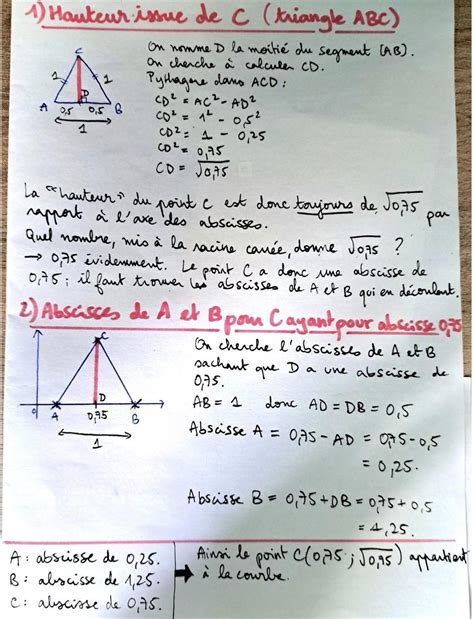 1) Hauteur issue de C (triangle ABC)
On nomme D la moitié du segment [AB].
On cherche à calculer CD.
Pythagore dans ACD :
CD² = AC² - AD²
CD² = 1² - 0,5²
CD² = 1 - 0,25
CD² = 0,75
CD = √0,75
C
1 1
A D B
0,5 0,5
1
La "hauteur" du point C est donc toujours de √0,75 par
rapport à l'axe des abscisses.
Quel nombre, mis à la racine carrée, donne √0,75 ?
→ 0,75 évidemment. Le point C a donc une abscisse de
0,75 ; il faut trouver les abscisses de A et B qui en découlent.
2) Abscisses de A et B pour C ayant pour abscisse 0,75
On cherche l'abscisses de A et B
sachant que D a une abscisse de
0,75.
AB = 1 donc AD = DB = 0,5
Abscisse A = 0,75 - AD = 0,75 - 0,5
= 0,25.
Abscisse B = 0,75 + DB = 0,75 + 0,5
= 1,25.
C
D
0 A 0,75 B
1
A : abscisse de 0,25.
B : abscisse de 1,25.
C : abscisse de 0,75.
→ Ainsi le point C(0,75 ; √0,75) appartient
à la courbe.